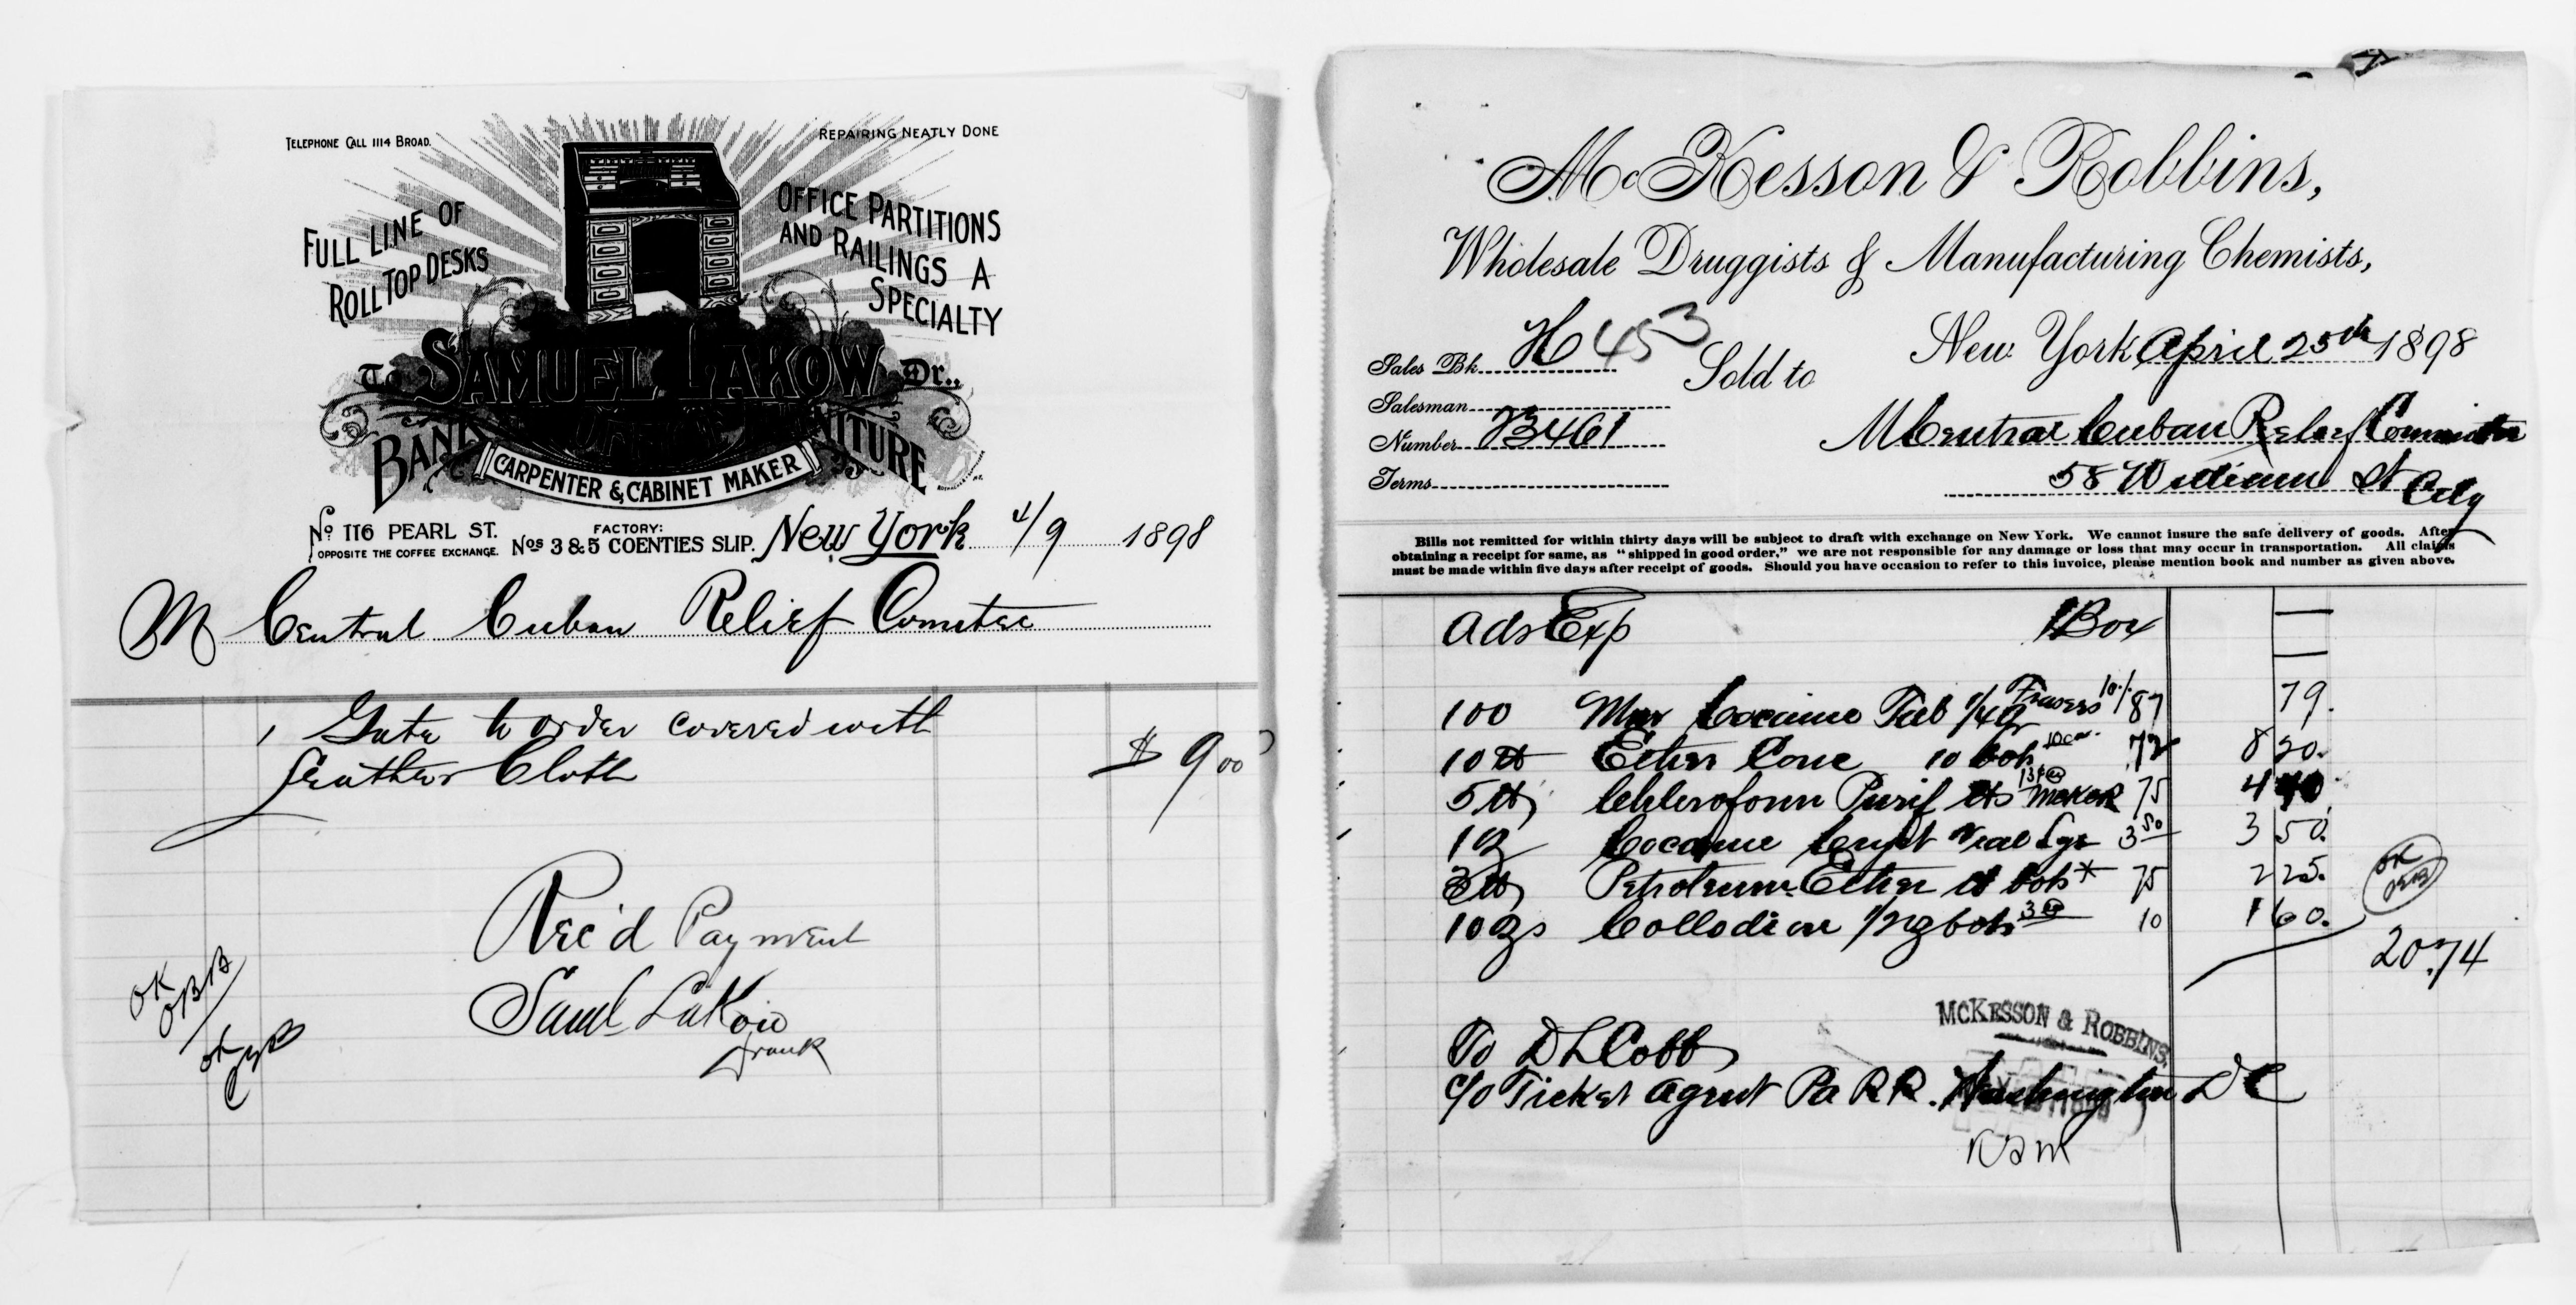 TELEPHONE CALL 1114 BROAD.
REPAIRING NEATLY DONE
FULL LINE OF
ROLL TOP DESKS
OFFICE PARTITIONS
AND RAILINGS A
SPECIALTY
To SAMUEL LAKOW Dr.,
BANK FURNITURE
CARPENTER & CABINET MAKER
No 116 PEARL ST.
OPPOSITE THE COFFEE EXCHANGE.
FACTORY:
Nos 3 & 5 COENTIES SLIP.
New York 4/9 1898
M Central Cuban Relief Comitee
1 Gate to order covered with
Leather Cloth $ 9 00
Rec'd Payment
Saml Lakow
Frank
OK
OK
McKesson & Robbins,
Wholesale Druggists & Manufacturing Chemists,
New York April 25th 1898
Sales Bk. H 453
Sold to
Salesman
Number B461
Terms
M Central Cuban Relief Committee
58 William St City
Bills not remitted for within thirty days will be subject to draft with exchange on New York. We cannot insure the safe delivery of goods. After
obtaining a receipt for same, as "shipped in good order," we are not responsible for any damage or loss that may occur in transportation. All claims
must be made within five days after receipt of goods. Should you have occasion to refer to this invoice, please mention book and number as given above.
Ads Exp 1 Box
100 Mur Cocaine Tab 1/4 gr 10% 87 79.
10 ℔ Ether Conc 10 bots 72 8 20.
5 ℔ Chloroform Purif ℔s 75 4
1 ℥ Cocaine Cryst 3 50 3 50.
3 ℔ Petroleum Ether ℔ bots * 75 2 25.
10 ℥s Collodion 1/2 ℥ bots 10 1 60.
OK
20.74
To D L Cobb
c/o Ticket Agent Pa R R. Washington D C
MCKESSON & ROBBINS.